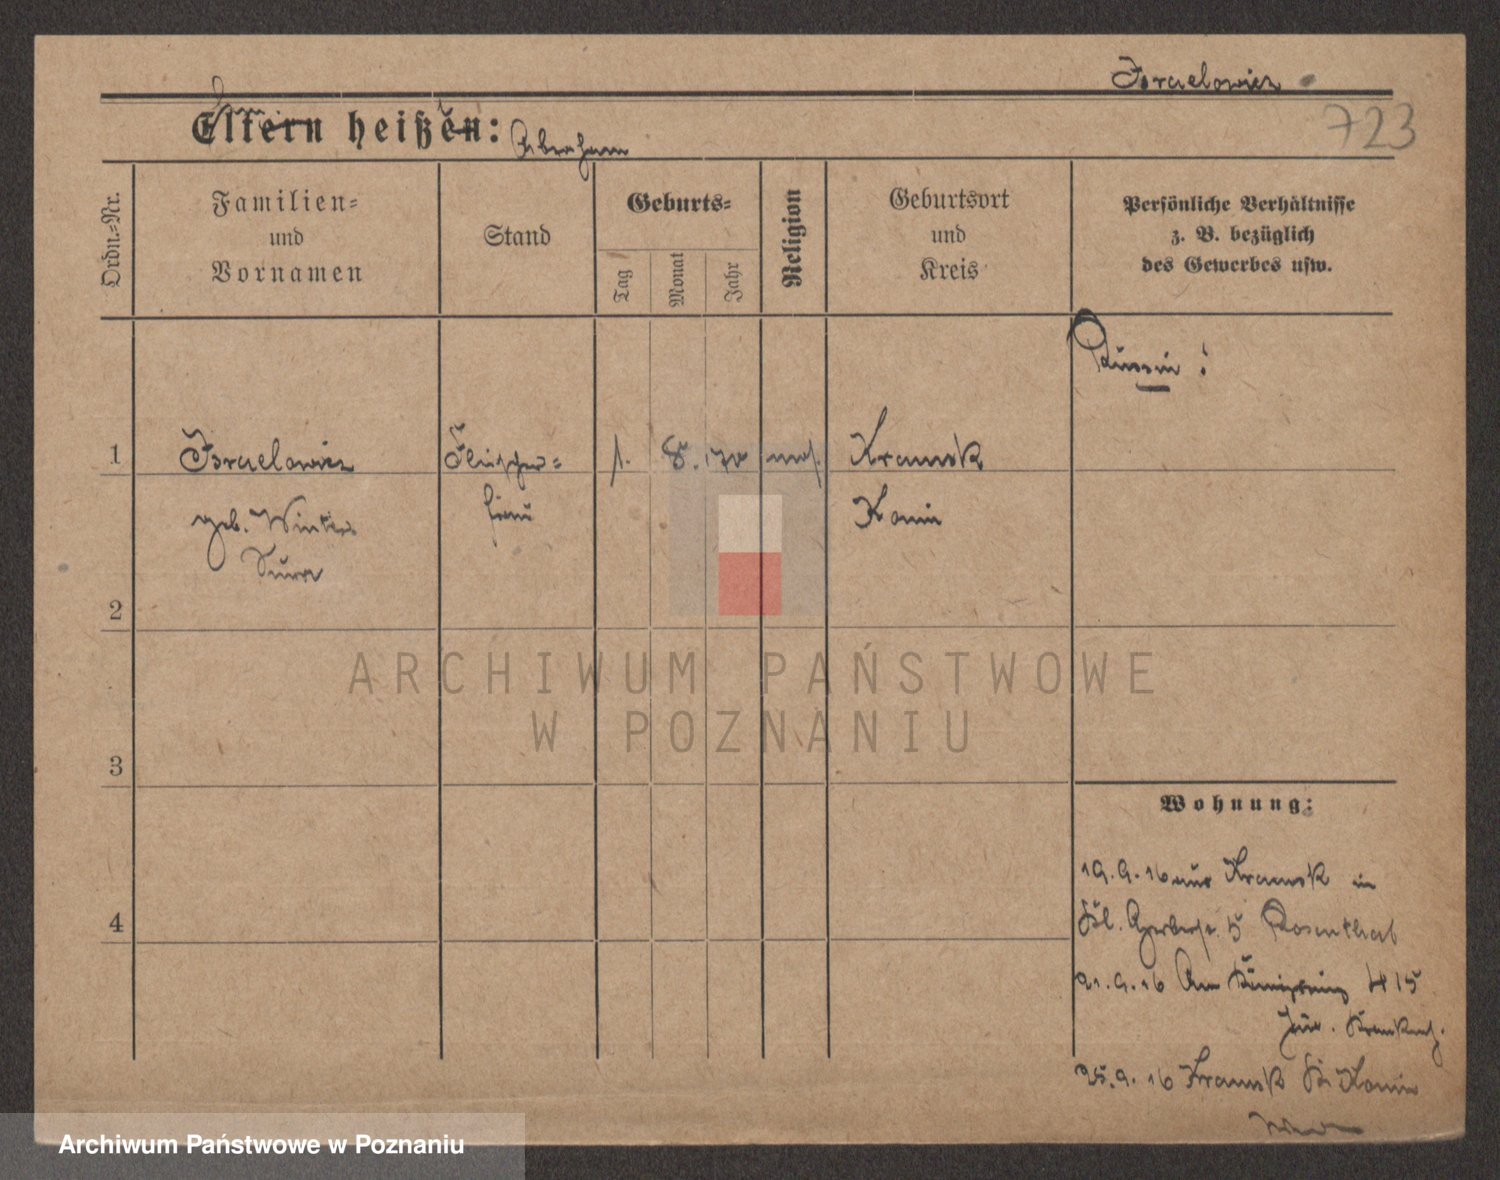 Israelowicz
723
Eltern heißen: Abraham
Ordn.-Nr.
Familien-
und
Vornamen
Stand
Geburts-
Tag
Monat
Jahr
Religion
Geburtsort
und
Kreis
Persönliche Verhältnisse
z. B. bezüglich
des Gewerbes usw.
Russin !
1
Israelowicz
geb. Winter
Sura
Fleischer-
frau
1. 8. 70
mos.
Kramsk
Konin
2
3
4
Wohnung:
19.9.16 aus Kramsk in
Kl. Gerberstr. 5 Rosenthal
21.9.16 Am Königsring 415
Jüd. Krankenh.
25.9.16 Kramsk Kr Konin
ARCHIWUM PAŃSTWOWE
W POZNANIU
Archiwum Państwowe w Poznaniu